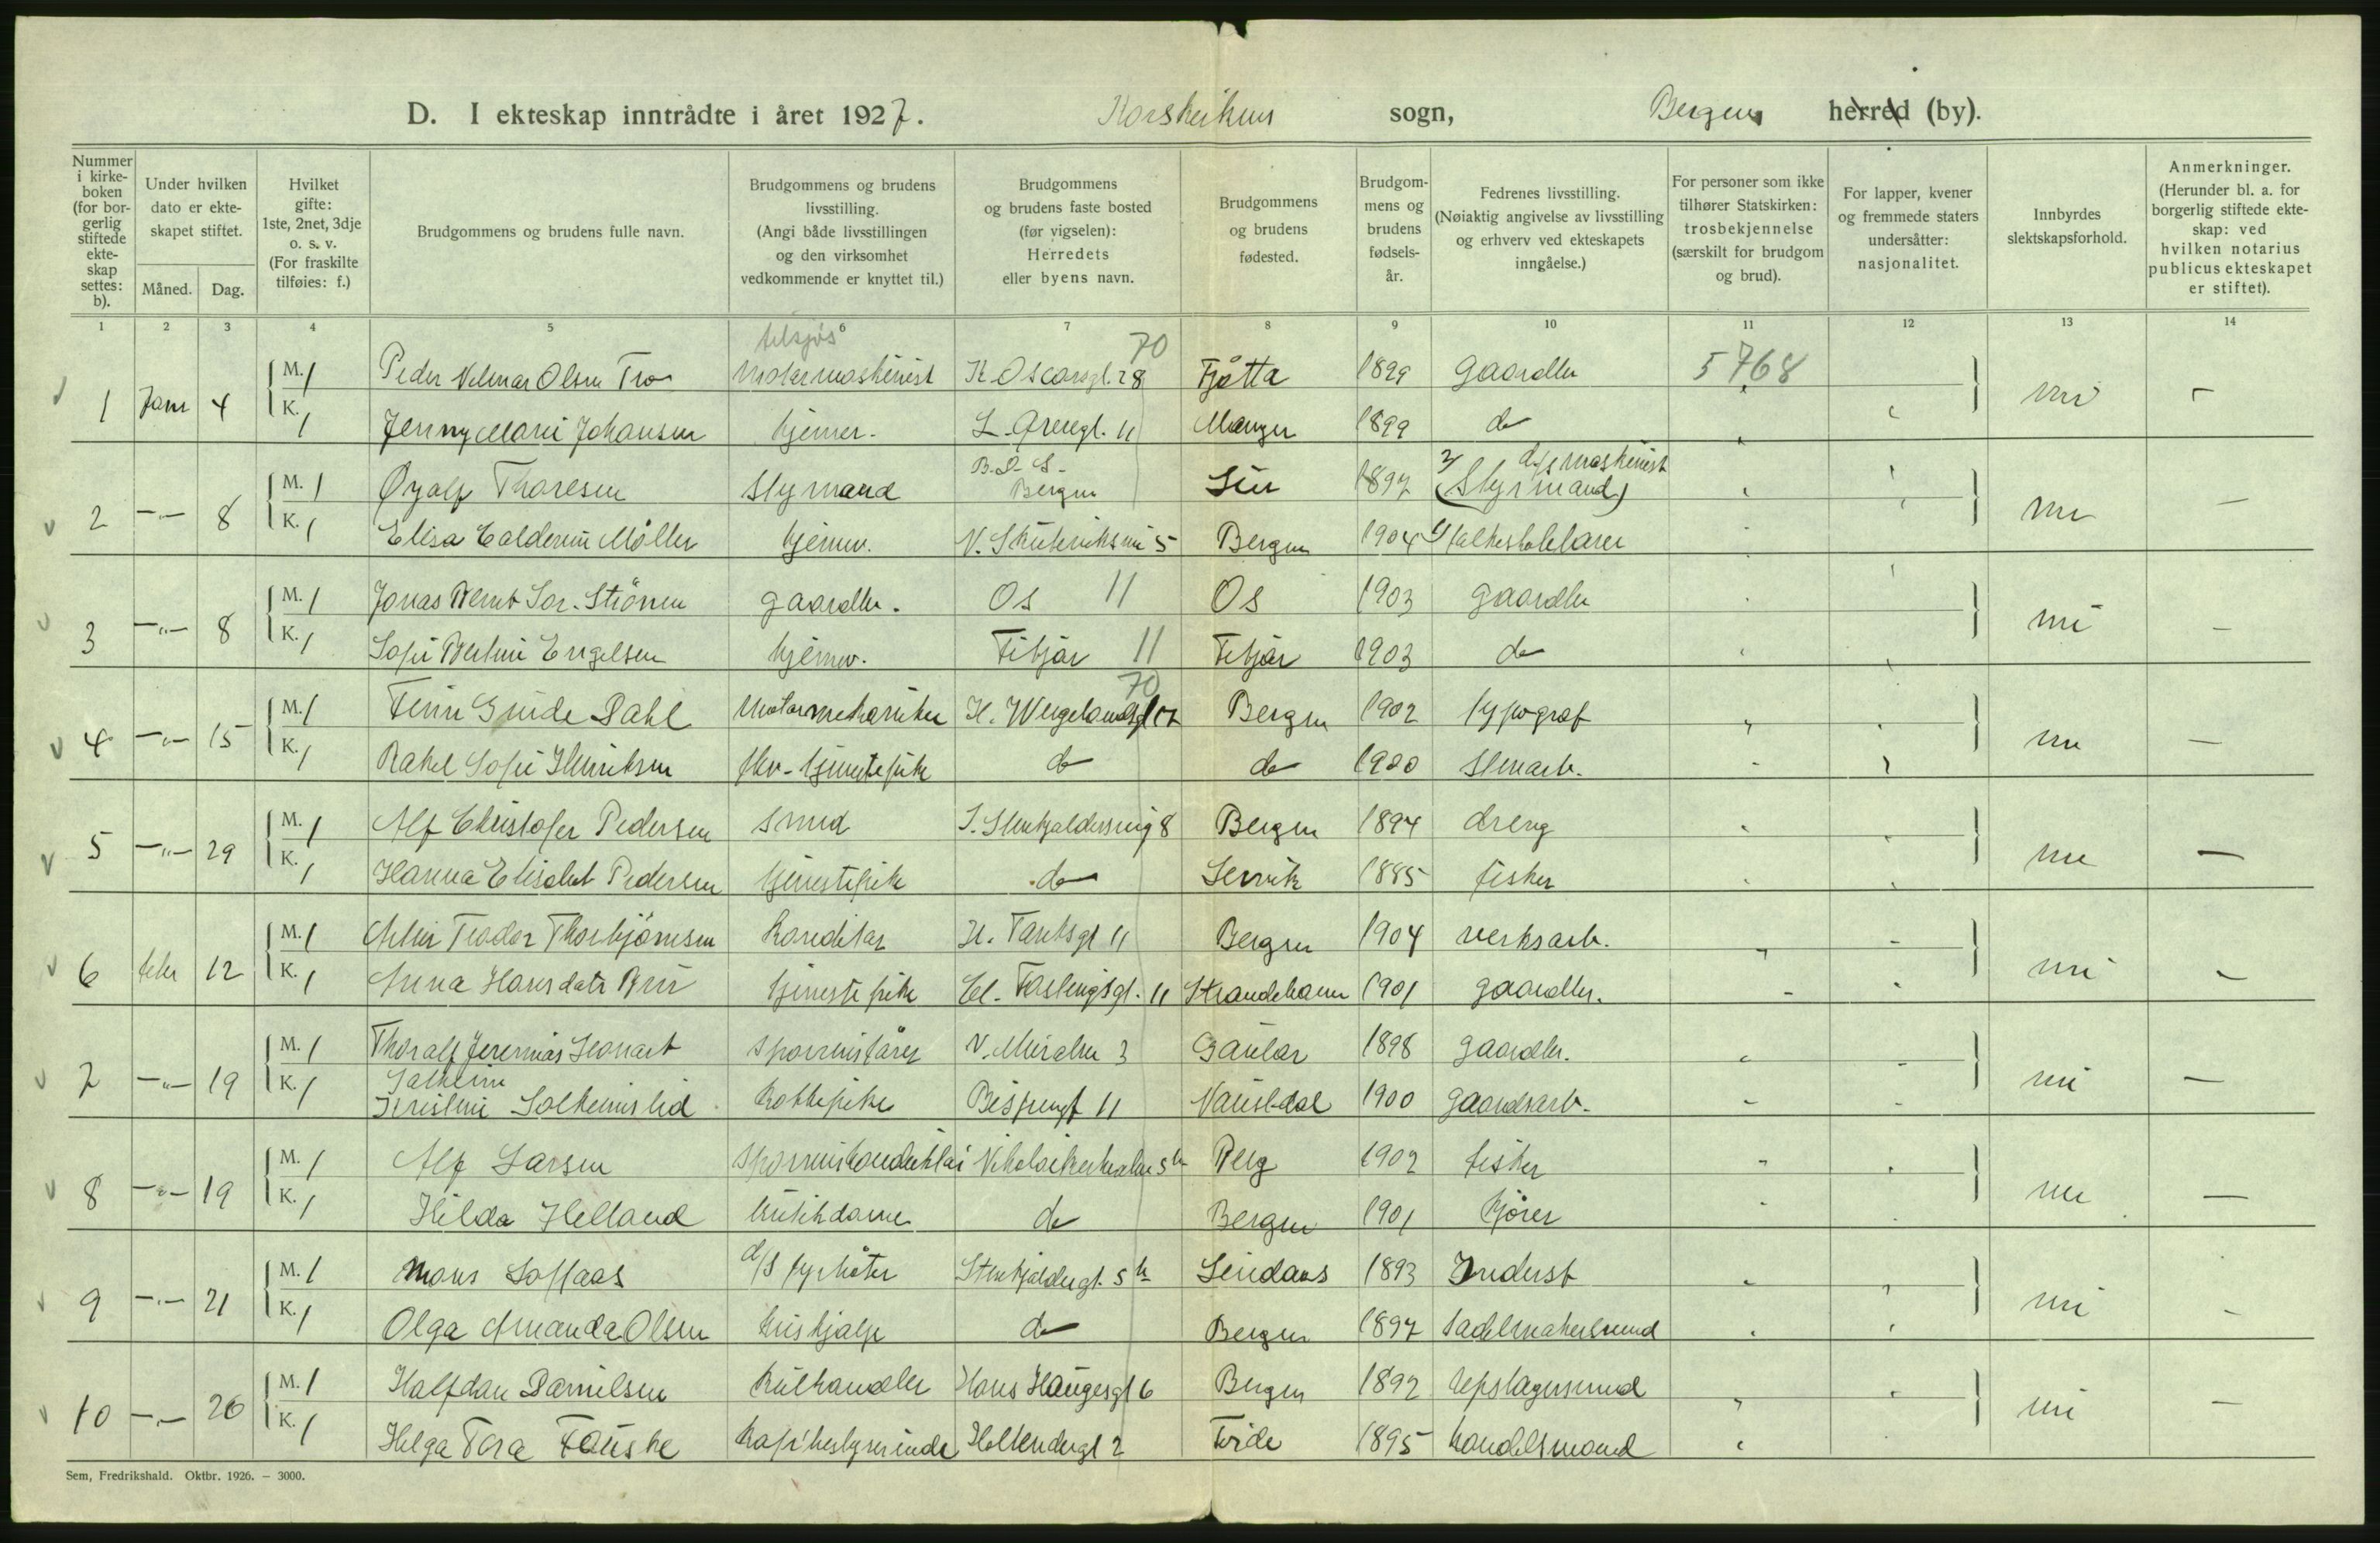 D. I ekteskap inntrådte i året 1927. Korskirkens sogn, Bergens herred (by).
Nummer i kirkeboken (for borgerlig stiftede ekteskap settes: b).
Under hvilken dato er ekteskapet stiftet.
Måned. Dag.
Hvilket gifte: 1ste, 2net, 3dje o. s. v. (For fraskilte tilføies: f.)
Brudgommens og brudens fulle navn.
Brudgommens og brudens livsstilling. (Angi både livsstillingen og den virksomhet vedkommende er knyttet til.)
Brudgommens og brudens faste bosted (før vigselen): Herredets eller byens navn.
Brudgommens og brudens fødested.
Brudgommens og brudens fødselsår.
Fedrenes livsstilling. (Nøiaktig angivelse av livsstilling og erhverv ved ekteskapets inngåelse.)
For personer som ikke tilhører Statskirken: trosbekjennelse (særskilt for brudgom og brud).
For lapper, kvener og fremmede staters undersåtter: nasjonalitet.
Innbyrdes slektskapsforhold.
Anmerkninger. (Herunder bl. a. for borgerlig stiftede ekteskap: ved hvilken notarius publicus ekteskapet er stiftet).
1 2 3 4 5 6 7 8 9 10 11 12 13 14
utsjøs 70
M. 1 Peder Vilmar Olsen Tro motormaskinist K Oscarsgt. 28 Tjøtta 1899 gaardbr 5768
1 Janr 4 K. 1 Jenny Marie Johansen hjemmev. Manger 1899 do nei -
B.D.S. d/s maskinist
M. 1 Øyolf Thoresen styrmand Bergen 1897 2/ (Styrmand)
2 -"- 8 K. 1 Elisa Calderin Møller hjemmev. 5 Bergen 1904 1/ nei -
M. 1 Jonas Bernt Sør-Strønen gaardbr. Os 11 Os 1903 gaardbr
3 -"- 8 K. 1 Sofie Bertine Engelsen hjemmev. Fitjar 11 Fitjar 1903 do nei -
70
M. 1 Finn Dahl motormekaniker H. Wergelandsgt 17 Bergen 1902 typograf
4 -"- 15 K. 1 Rakel Sofie Henriksen do do 1900 stenarb. nei -
M. 1 Alf Christofer Pedersen smed 8 Bergen 1894 dreng
5 -"- 29 K. 1 Hanna Elisabet Pedersen tjenestepike do 1885 fisker nei -
M. 1 Teodor Thorbjørnsen konditor H. Tanksgt 11 Bergen 1904 verksarb.
6 febr 12 K. 1 Anna Hansdatr tjenestepike 11 Strandebarm 1901 gaardbr. nei -
M. 1 Thoralf Jeremias Leonart sporvisfører V. Muralm 3 Gaular 1898 gaardbr.
Solheim
7 -"- 19 K. 1 Kristine Solheimslid kokkepike 11 Naustdal 1900 gaardsarb. nei -
M. 1 Alf Larsen sporveiskonduktør Nikolaikirkealm 5 b Berg 1902 fisker
8 -"- 19 K. 1 Hilda Helland butikdame do Bergen 1901 kjører nei -
M. 1 Mons Loftaas d/s fyrbøter 5 b Lindaas 1893 Inderst
9 -"- 21 K. 1 Olga Amanda Olsen hushjælp do Bergen 1897 sadelmakersvend nei -
M. 1 Halfdan Danielsen kulhandler Hans Haugesgt 6 Bergen 1892 repslagersvend
10 -"- 26 K. 1 Helga Tora Fauske kafebestyrerinde Hollendergt 2 Førde 1895 handelsmand nei -
Sem, Fredrikshald. Oktbr. 1926. – 3000.